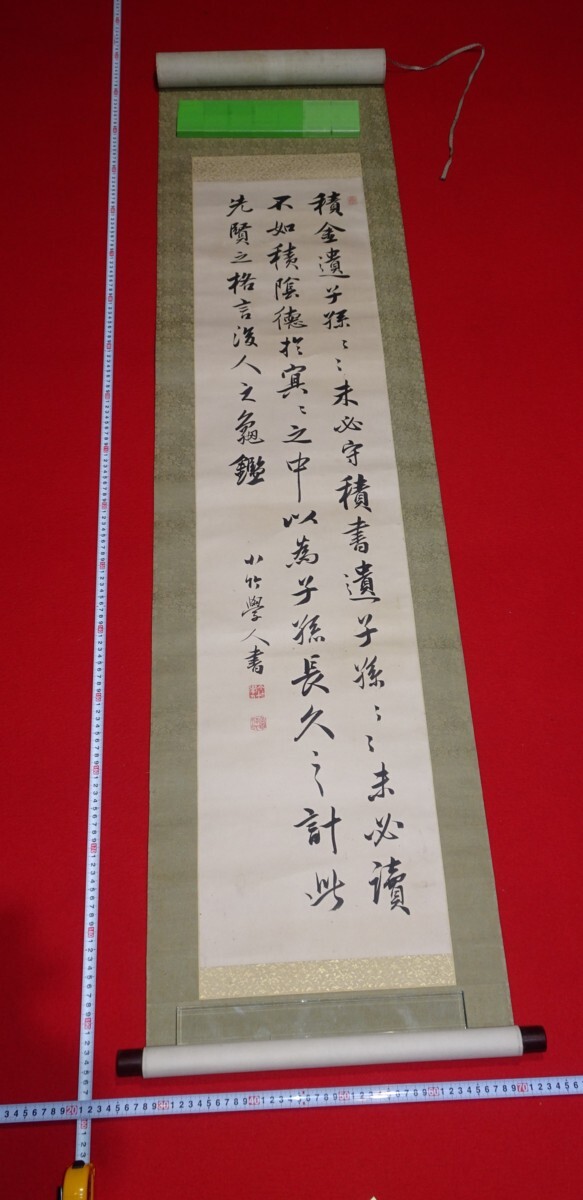 積金遺子孫〻〻未必守積書遺子孫〻〻未必讀
不如積陰德於冥〻之中以為子孫長久之計此
先賢之格言後人之龜鑑
小竹學人書